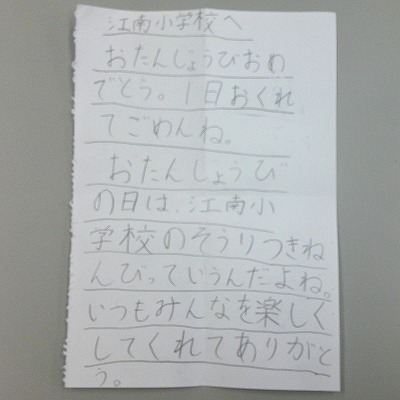 江南小学校へ
おたんじょうびおめ
でとう。1日おくれ
てごめんね。
おたんじょうび
の日は、江南小
学校のそうりつきね
んびっていうんだよね。
いつもみんなを楽しく
してくれてありがと
う。